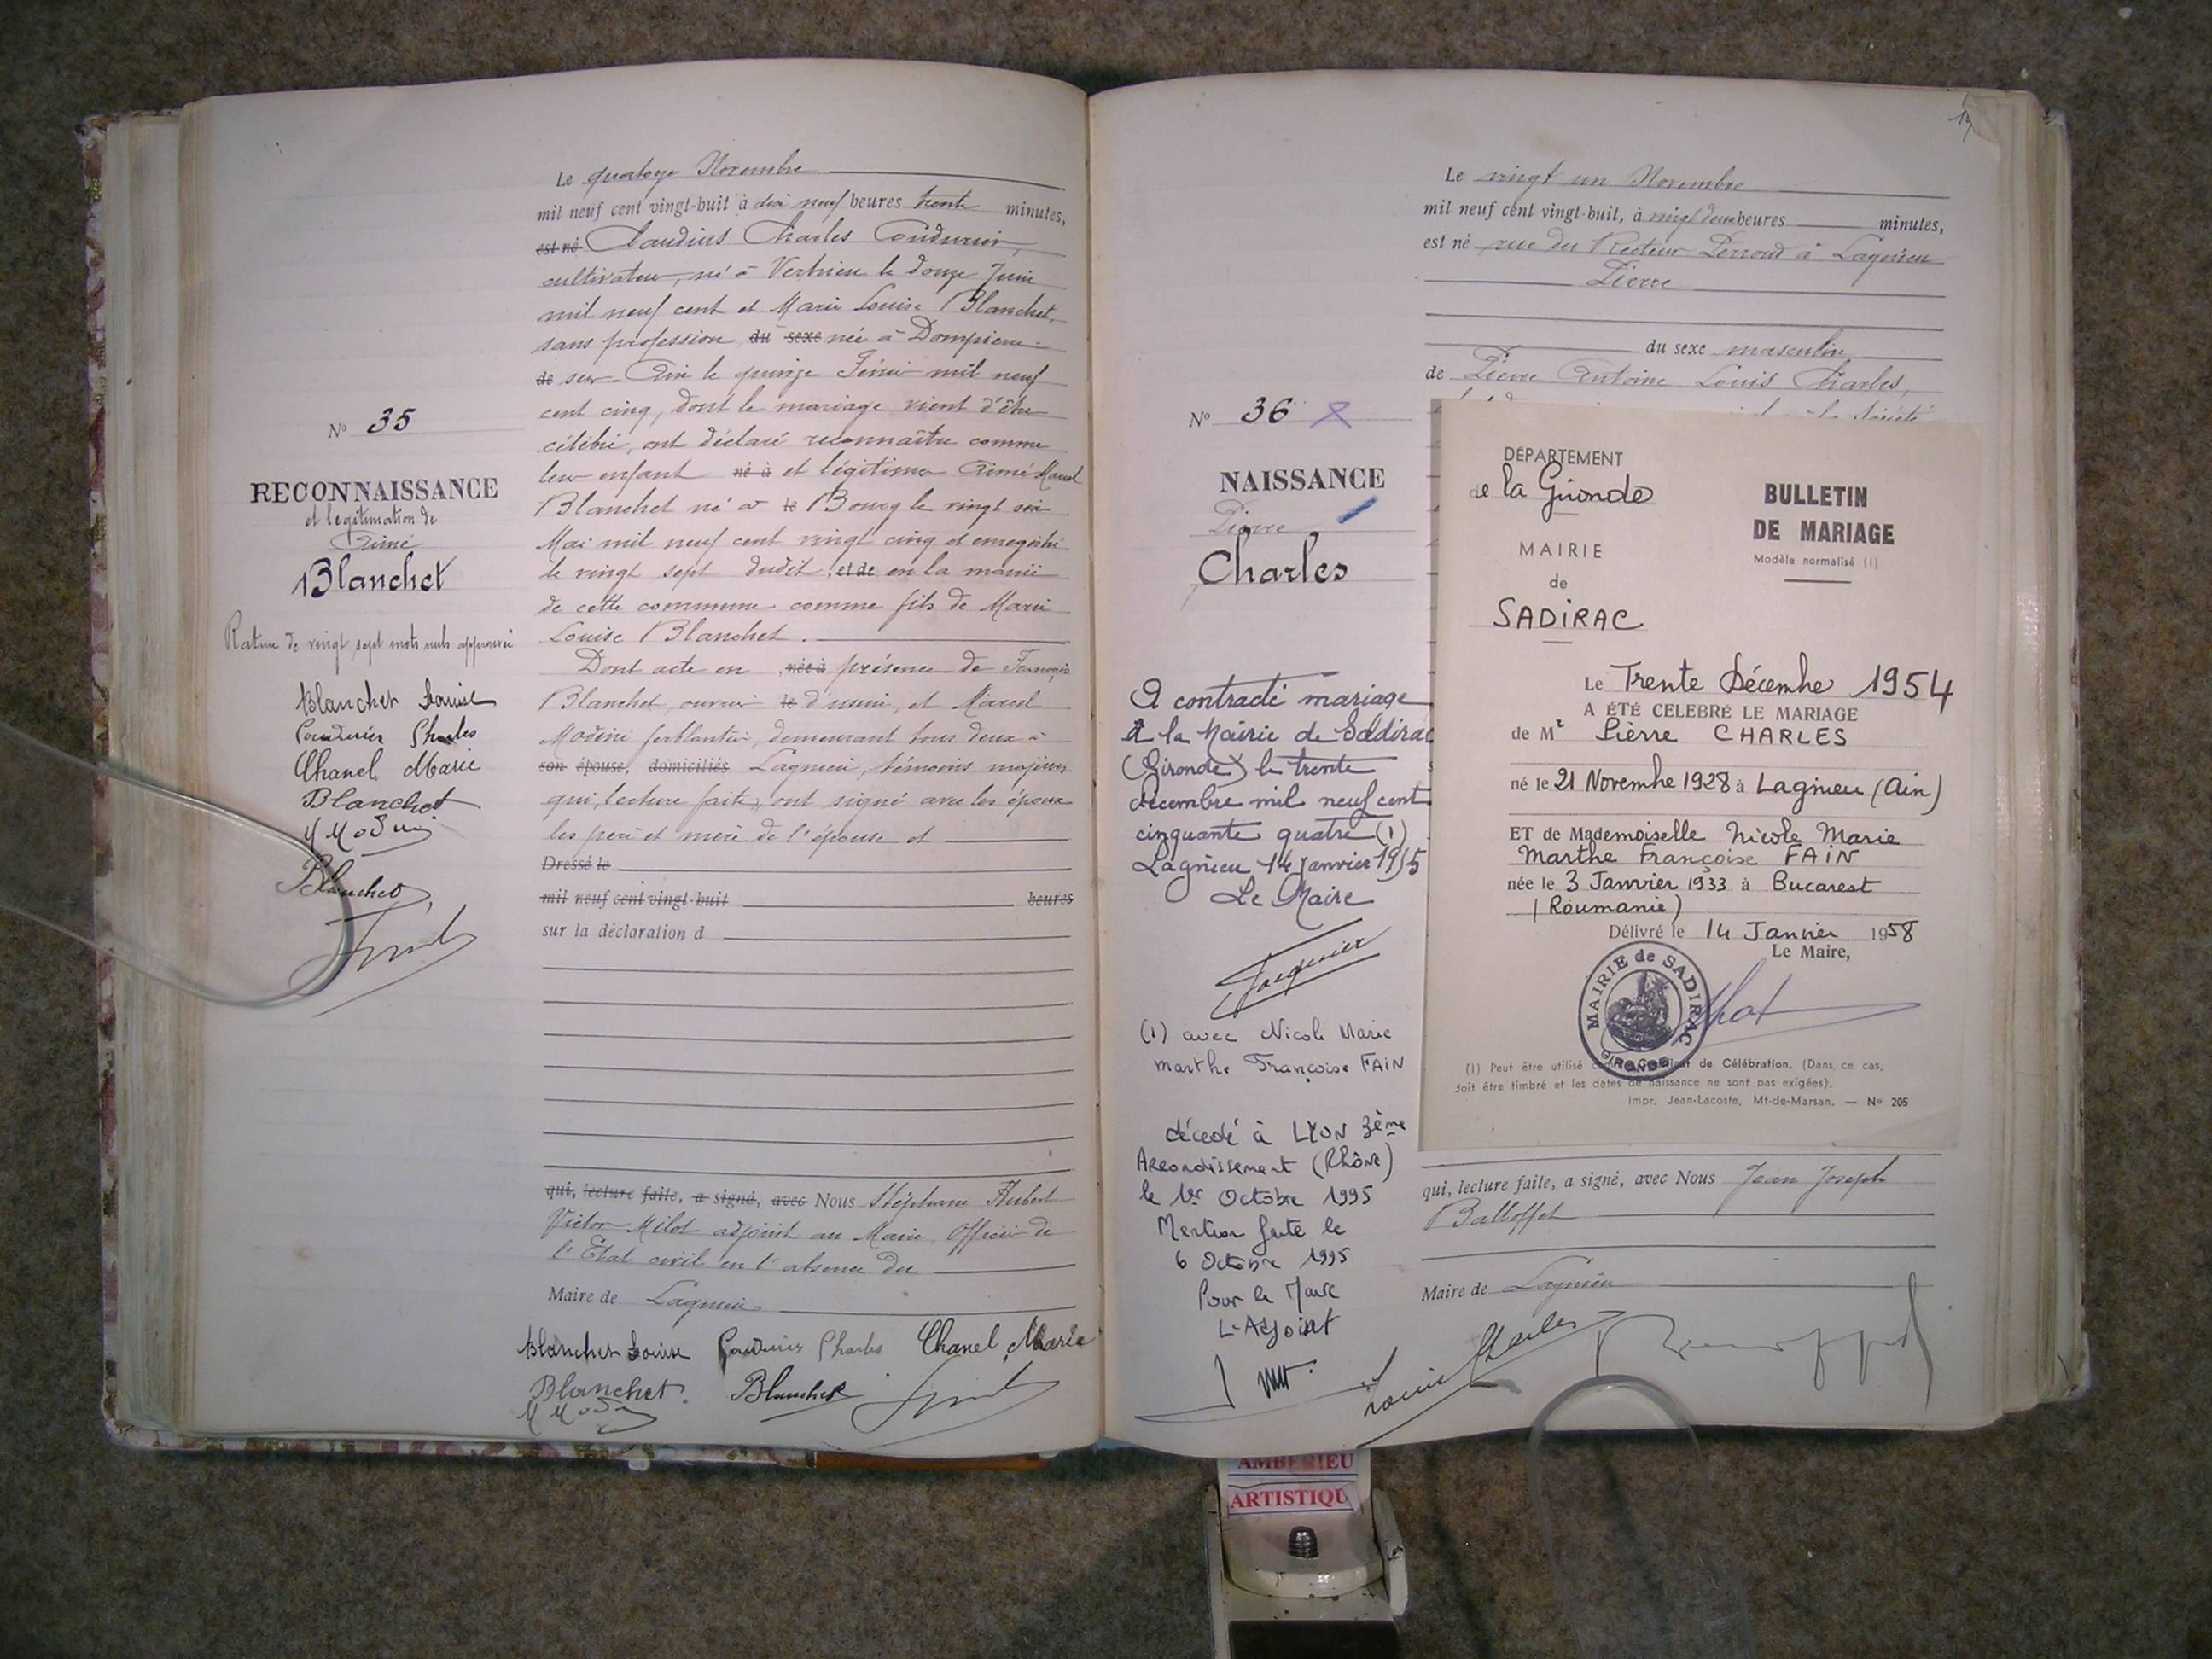 Le quatorze Novembre
mil neuf cent vingt-huit à dix neuf heures trente minutes,
est né Claudius Charles Coudurier,
cultivateur, né à Vertrieu le douze Juin
mil neuf cent et Marie Louise Blanchet,
sans profession du sexe née à Dompierre
de sur-Ain le quinze Février mil neuf
cent cinq, dont le mariage vient d'être
célébré, ont déclaré reconnaître comme
leur enfant né à et légitimer Aimé Marcel
Blanchet né à le Bourg le vingt six
Mai mil neuf cent vingt cinq et enregistré
le vingt sept dudit et de en la mairie
de cette commune comme fils de Marie
Louise Blanchet.
Dont acte en née à présence de François
Blanchet, ouvrier le d'usine, et Marcel
Modini ferblantier, demeurant tous deux à
son épouse, domiciliés Lagnieu, témoins majeurs
qui, lecture faite, ont signé avec les époux
les père et mère de l'épouse et
Dressé le
mil neuf cent vingt-huit heures
sur la déclaration d
qui, lecture faite, a signé, avec Nous Stéphane Hubert
Victor Milot adjoint au Maire, Officier de
l'Etat civil en l'absence du
Maire de Lagnieu
Blanchet Louise Coudurier Charles Chanel Marie
Blanchet Blanchet
N° 35
RECONNAISSANCE
et légitimation de
Aimé
Blanchet
Rature de vingt sept mots nuls approuvée
Blanchet Louise
Coudurier Charles
Chanel Marie
Blanchet
Blanchet
19
Le vingt un Novembre
mil neuf cent vingt-huit, à vingt deux heures minutes,
est né rue du Recteur Perroud à Lagnieu
Pierre
du sexe masculin
de Pierre Antoine Louis Charles,
N° 36
NAISSANCE
Pierre
Charles
A contracté mariage
à la Mairie de Sadirac
(Gironde) le trente
décembre mil neuf cent
cinquante quatre (1)
Lagnieu 14 janvier 1955
Le Maire
(1) avec Nicole Marie
Marthe Françoise FAIN
décédé à LYON 3ème
Arrondissement (Rhône)
le 1er Octobre 1995
Mention faite le
6 Octobre 1995
Pour le Maire
L'Adjoint
DÉPARTEMENT
de la Gironde
MAIRIE
de
SADIRAC
BULLETIN
DE MARIAGE
Modèle normalisé (1)
Le Trente Décembre 1954
A ÉTÉ CELEBRÉ LE MARIAGE
de Mr Pierre CHARLES
né le 21 Novembre 1928 à Lagnieu (Ain)
ET de Mademoiselle Nicole Marie
Marthe Françoise FAIN
née le 3 Janvier 1933 à Bucarest
(Roumanie)
Délivré le 14 Janvier 1958
Le Maire,
MAIRIE de SADIRAC
GIRONDE
(1) Peut être utilisé de Célébration. (Dans ce cas,
doit être timbré et les dates de naissance ne sont pas exigées).
Impr. Jean-Lacoste, Mt-de-Marsan. — N° 205
qui, lecture faite, a signé, avec Nous Jean Joseph
Balloffet
Maire de Lagnieu
Louis Charles
AMBERIEU
ARTISTIQU